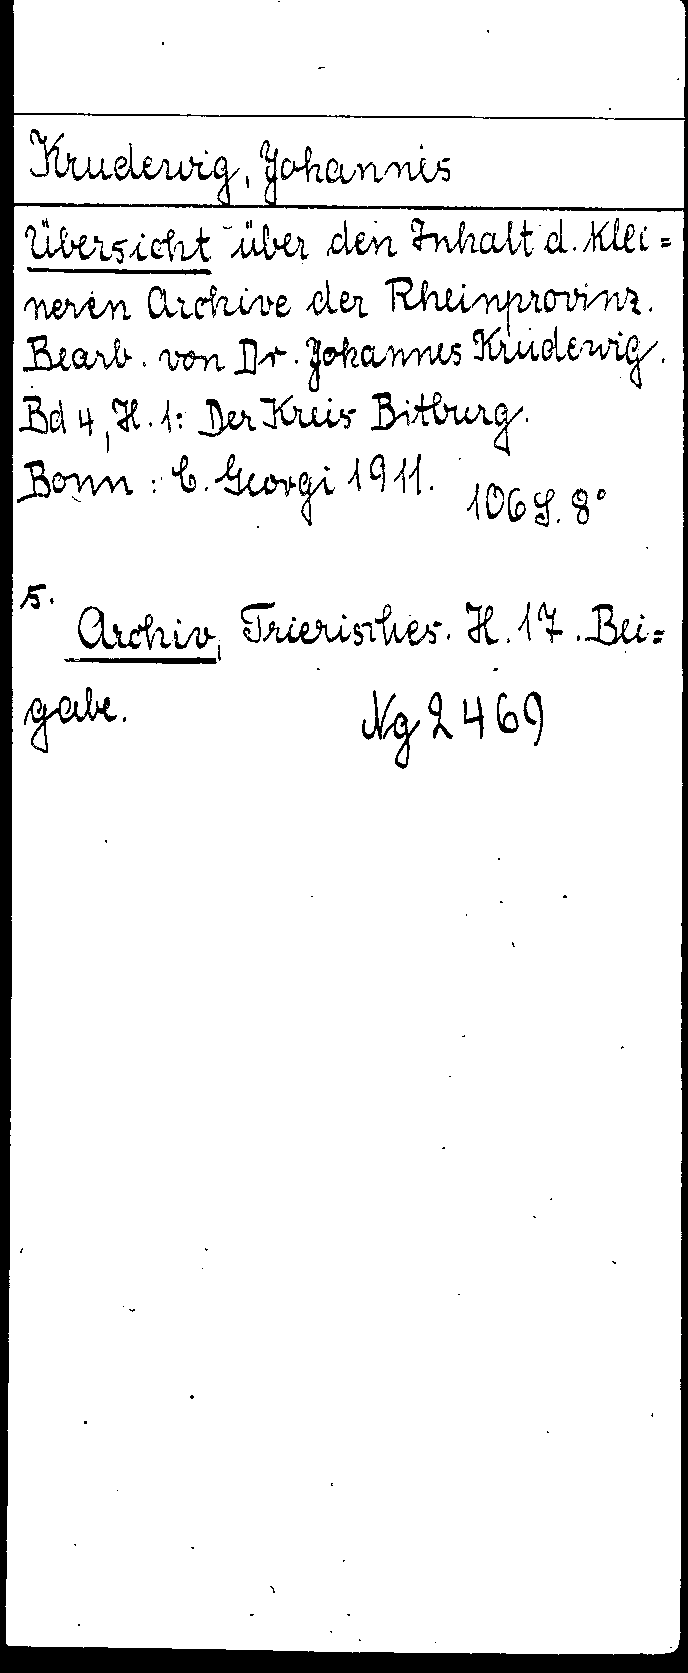 Krudewig, Johannes
Übersicht über den Inhalt d. klei=
neren Archive der Rheinprovinz.
Bearb. von Dr. Johannes Krudewig.
Bd 4, H. 1: Der Kreis Bitburg.
Bonn: C. Georgi 1911. 106 S. 8°
s.
Archiv, Trierisches. H. 17. Bei=
gabe. Ng 2469